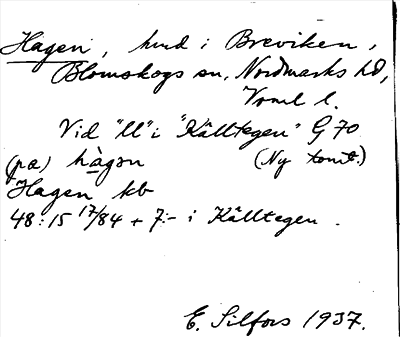 Hagen, hmd i Breviken,
Blomskogs sn, Nordmarks hd,
Vrml l.
Vid "ll" i "Källtegen" G 70
(pa) hàgən (Ny tomt.)
Hagen kb
48:15 17/84 + 7:- i Källtegen.
E. Silfors 1937.